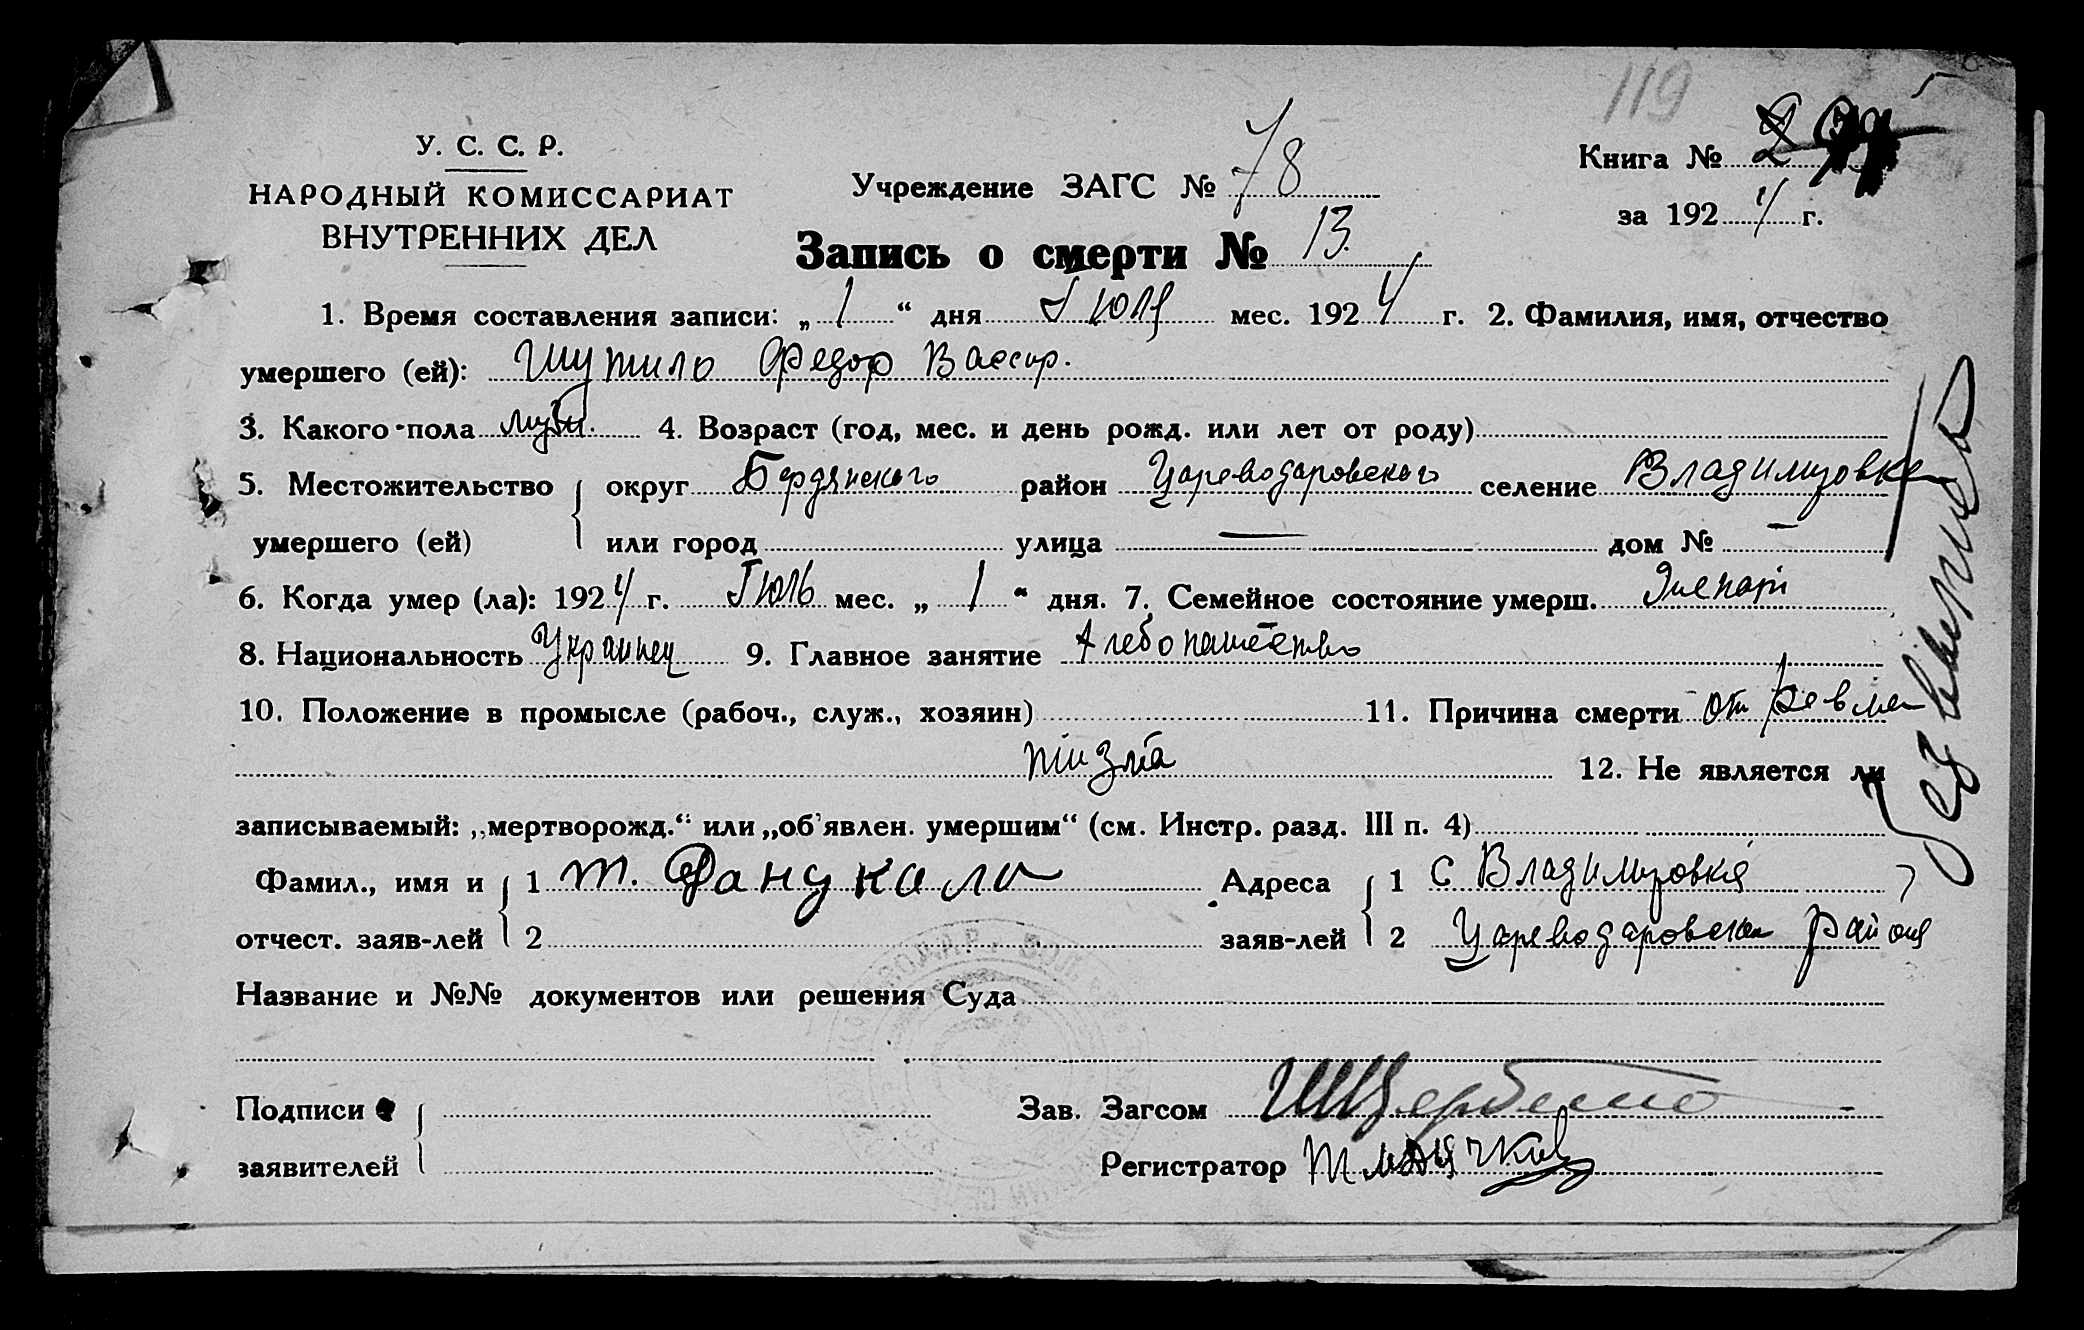 119
У. С. С. Р.
НАРОДНЫЙ КОМИССАРИАТ
ВНУТРЕННИХ ДЕЛ
Учреждение ЗАГС № 78
Книга №
за 1924 г.
Запись о смерти № 13
1. Время составления записи: „1“ дня Июля мес. 1924 г. 2. Фамилия, имя, отчество
умершего (ей): Шутило Федор
3. Какого пола муж. 4. Возраст (год, мес. и день рожд. или лет от роду)
5. Местожительство округ Бердянского район Цареводаровского селение Владимировка
умершего (ей) или город улица — дом № —
6. Когда умер (ла): 1924 г. Июль мес. „1“ дня. 7. Семейное состояние умерш. Женат
8. Национальность Украинец 9. Главное занятие Хлебопашество
10. Положение в промысле (рабоч., служ., хозяин) 11. Причина смерти от ревма
тизма 12. Не является ли
записываемый: „мертворожд.“ или „об'явлен. умершим“ (см. Инстр. разд. III п. 4)
Фамил., имя и 1 Адреса 1 с Владимировка
отчест. заяв-лей 2 заяв-лей 2 Цареводаровска района
Название и №№ документов или решения Суда
Подписи Зав. Загсом
заявителей Регистратор